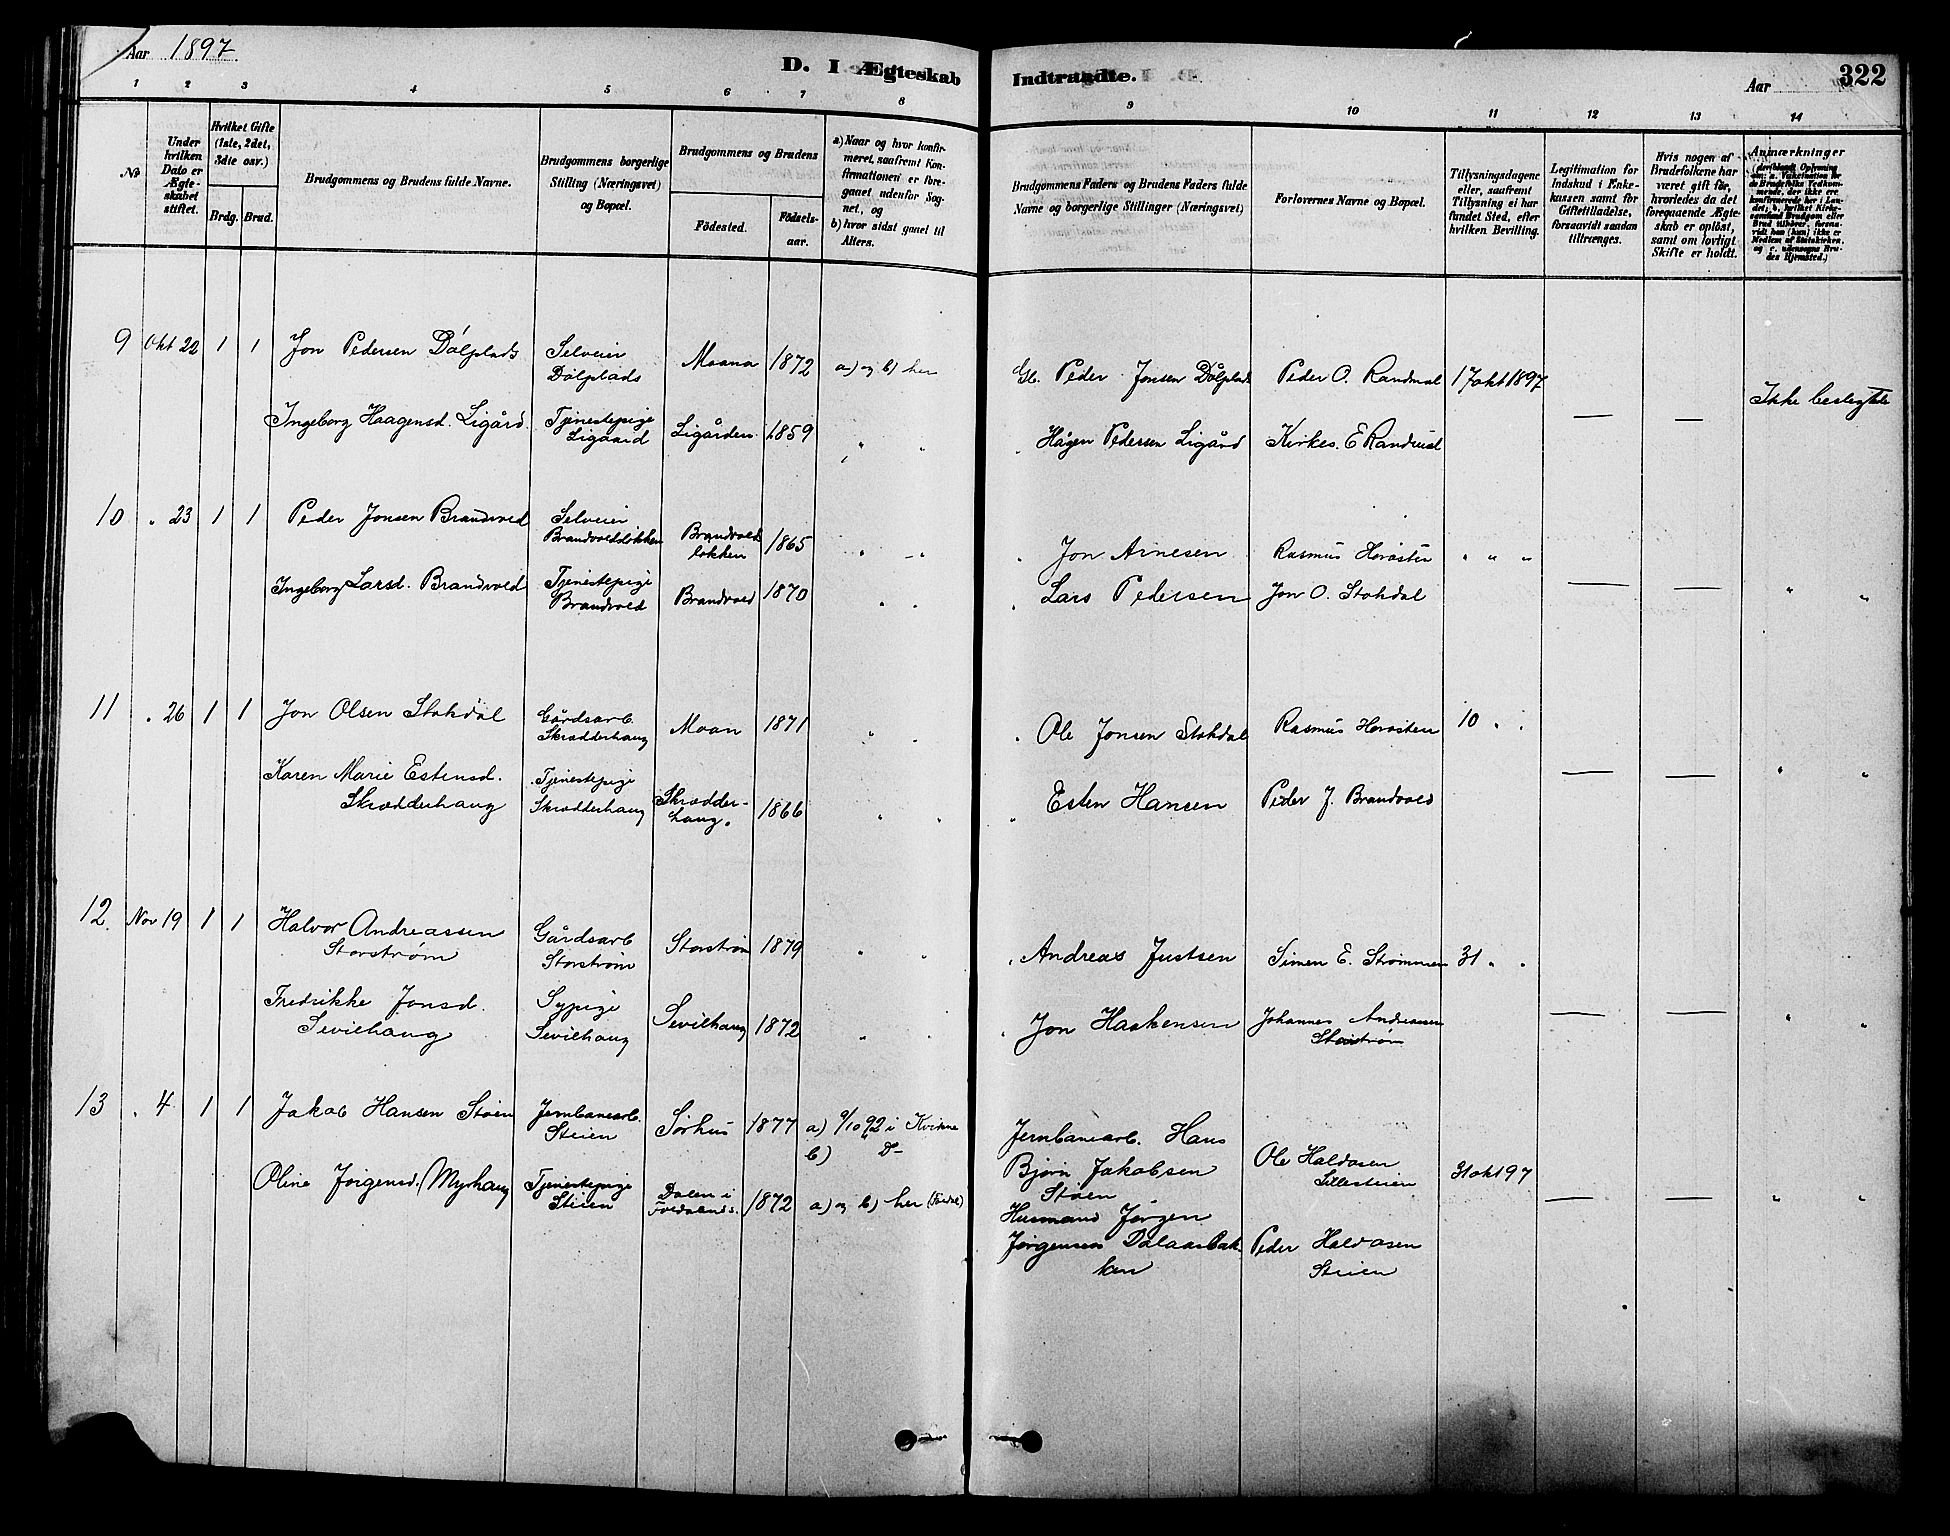 Aar 1897
D. I Ægteskab Indtraadte.
Aar 322
1 2 3 4 5 6 7 8 9 10 11 12 13 14
No
Under hvilken Dato er Ægteskabet stiftet.
Hvilket Gifte (1ste, 2det, 3die osv.)
Brdg. Brud.
Brudgommens og Brudens fulde Navne.
Brudgommens borgerlige Stilling (Næringsvei) og Bopæl.
Brudgommens og Brudens
Födested. Födsels-aar.
a) Naar og hvor konfirmeret, saafremt Konfirmationen er foregaaet udenfor Sognet, og
b) hvor sidst gaaet til Alters.
Brudgommens Faders og Brudens Faders fulde Navne og borgerlige Stillinger (Næringsvei)
Forlovernes Navne og Bopæl.
Tillysningsdagene eller, saafremt Tillysning ei har fundet Sted, efter hvilken Bevilling.
Legitimation for Indskud i Enkekassen samt for Giftetilladelse, forsaavidt saadan tiltrænges.
Hvis nogen af Brudefolkene har været gift før, hvorledes da det foregaaende Ægteskab er oplöst, samt om lovligt Skifte er holdt.
Anmærkninger
9 Okt 22 1 1 Jon Pedersen Dölplads Selveier Dölplads Moana 1872 a) og b) her Gb. Peder Jonsen Dölplads Peder O. Randmæl 17 okt 1897
Ikke beslegtede
Ingeborg Haagensd. Ligård. Tjenestepige Ligaard Ligården 1859 " " " Hågen Pedersen Ligård Kirkes. E Randmæl — —
10 " 23 1 1 Peder Jonsen Brandvold Selveier Brandvoldløkken Brandvold løkken 1865 " " " Jon Arnesen Rasmus Horåsten " " "
Ingeborg Larsd. Brandvold Tjenestepige Brandvold Brandvold 1870 " " " Lars Pedersen Jon O. Stokdal — — " "
11 " 26 1 1 Jon Olsen Stokdal Gårdsarb. Skrædderhaug Moan 1871 " " " Ole Jonsen Stokdal Rasmus Horåsten 10 " "
Karen Marie Estensd. Skrædderhaug Tjenestepige Skrædderhaug Skrædderhaug. 1866 " " " Esten Hansen Peder J. Brandvold — — " "
12. Nov 19 1 1 Halvor Andreassen Storstrøm Gårdsarb Storstrøm Storstrøm 1879 " " " Andreas Justsen Simen E. Strømmen 31 " "
Fredrikke Jonsd. Sevilhaug Sypige Sevilhaug Sevilhaug 1872 " " " Jon Haakensen Johannes Andreassen Storstrøm — — " "
13 " 4 1 1 Jakob Hansen Støen Jernbanearb. Steien Sørhus 1877 a) 9/10 92 i Kvikne b) " D- Jernbanearb. Hans Bjørn Jakobsen Støen Ole Haldosen Lillesteien 31 okt 97
Oline Jørgensd. Myrhaug Tjenestepige Steien Dalen i Foldalens. 1872 a) og b) her (Foldal) Husmand Jørgen Jørgensen Dalaasbakken Peder Haldosen Steien — — " "